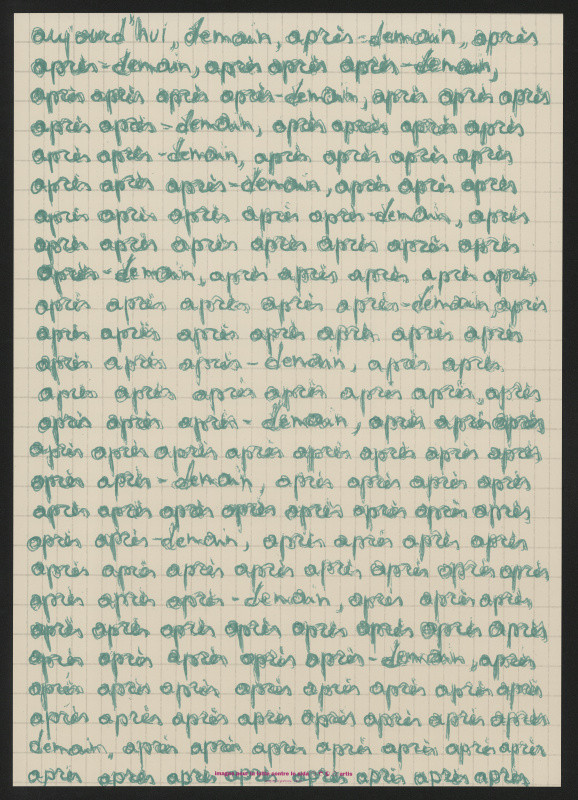 aujourd'hui, demain, après-demain, après
après-demain, après après après-demain,
après après après après-demain, après après après
après après-demain, après après après après
après après-demain, après après après après
après après après-demain, après après après
après après après après après-demain, après
après après après après après après après
après-demain, après après après après après
après après après après après-demain, après
après après après après après après après
après après après-demain, après après
après après après après après après, après
après après après-demain, après après après
après après après après après après après après
après après-demain, après après après après
après après après après après après après après
après après-demain, après après après après
après après après après après après après après
après après après-demain, après après après
après après après après après après après après
après après après après après-demain, après
après après après après après après après après
après après après après après après après après
demain, après après après après après après après
après après après après après après après après
Images pour la lutte contre le sida
Artis